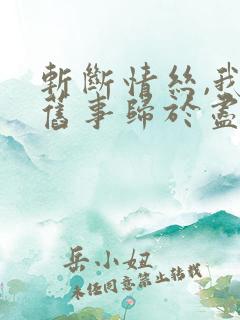 斬斷情絲,我
舊事歸於盡
岳小妞
未经同意禁止转载